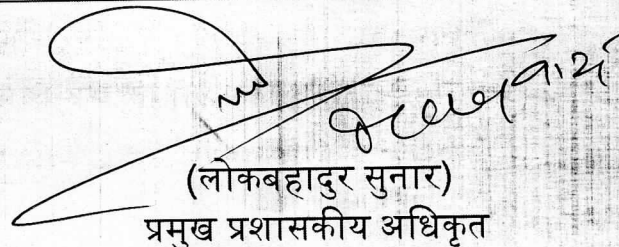 (लोकबहादुर सुनार)
प्रमुख प्रशासकीय अधिकृत